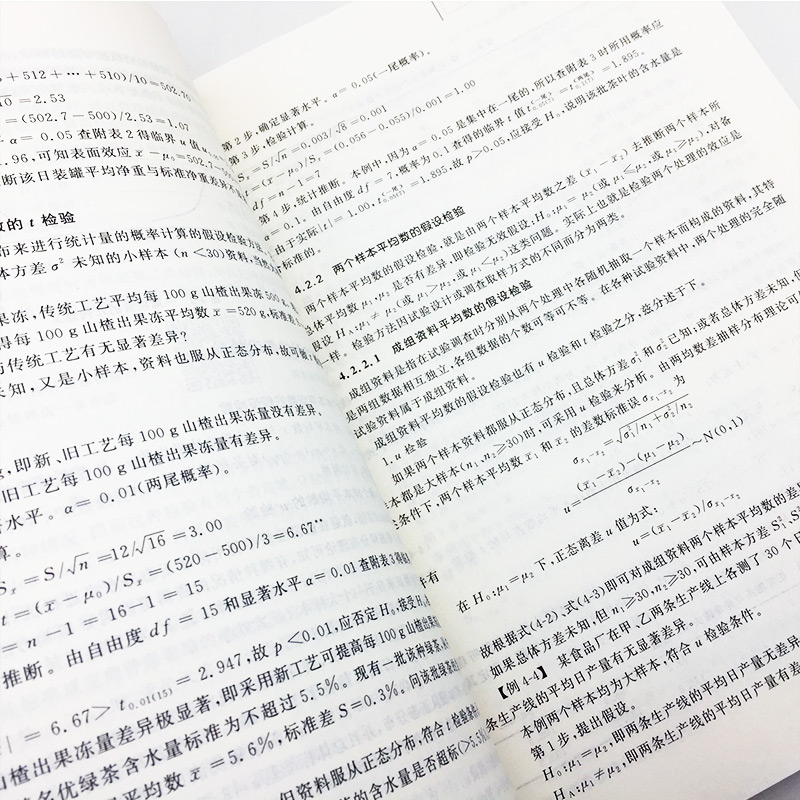 + 512 + … + 510)/10 = 502.70
= 2.53
= (502.7 - 500)/2.53 = 1.07
α = 0.05 查附表 2 得临界 u 值
.96,可知表面效应 x̄ - μ₀ = 502.7
断该日装罐平均净重与标准净重差异
数的 t 检验
布来进行统计量的概率计算的假设检验方法
体方差 σ² 未知的小样本 (n < 30) 资料,
果冻,传统工艺平均每 100 g 山楂出果冻 500
得每 100 g 山楂出果冻平均数 x̄ = 520 g,标准
与传统工艺有无显著差异?
未知,又是小样本,资料也服从正态分布,故可
,即新、旧工艺每 100 g 山楂出果冻量没有差异。
旧工艺每 100 g 山楂出果冻量有差异。
著水平。α = 0.01(两尾概率)。
算。
= S/√n = 12/√16 = 3.00
t = (x̄ - μ₀)/Sₓ̄ = (520 - 500)/3 = 6.67**
= n - 1 = 16 - 1 = 15
推断。由自由度 df = 15 和显著水平 α = 0.01 查附表 3
| = 6.67 > t₀.₀₁₍₁₅₎ = 2.947,故 p < 0.01,应否定 H₀,接受
山楂出果冻量差异极显著,即采用新工艺可提高每 100 g 山楂出果冻
名优绿茶含水量标准为不超过 5.5%。现有一批该种绿茶,
平均数 x̄ = 5.6%,标准差 S = 0.3%。问该批绿茶
但资料服从正态分布,符合 t 检验条件
的含水量是否超标(>5.5
第 2 步,确定显著水平。α = 0.05(一尾概率)。
第 3 步,检验计算。
Sₓ̄ = S/√n = 0.003/√8 = 0.001
t = (x̄ - μ₀)/Sₓ̄ = (0.056 - 0.055)/0.001 = 1.00
df = n - 1 = 7
第 4 步,统计推断。本例中,因为 α = 0.05 是集中在一尾的,所以查附表 3 时所用概率应
0.1。由自由度 df = 7,概率为 0.1 查得的临界 t 值 = 1.895。
由于实际 |t| = 1.00, = 1.895,故 p > 0.05,应接受 H₀,说明该批茶叶的含水量是
标准的。
4.2.2 两个样本平均数的假设检验
两个样本平均数的假设检验,就是由两个样本平均数之差 (x̄₁ - x̄₂) 去推断两个样本所
总体平均数 μ₁、μ₂ 是否有差异,即检验无效假设:H₀:μ₁ = μ₂(或 μ₁ ≤ μ₂,或 μ₁ ≥ μ₂),对备
假设 H_A:μ₁ ≠ μ₂(或 μ₁ > μ₂,或 μ₁ < μ₂)这类问题。实际上也就是检验两个处理的效应是
样。检验方法因试验设计或调查取样方式的不同而分为两类。
4.2.2.1 成组资料平均数的假设检验
成组资料是指在试验调查时分别从两个处理中各随机抽取一个样本而构成的资料,其特
是两组数据相互独立,各组数据的个数可等可不等。在各种试验资料中,两个处理的完全随
试验资料属于成组资料。
成组资料平均数的假设检验也有 u 检验和 t 检验之分,兹分述于下。
1. u 检验
如果两个样本资料都服从正态分布,且总体方差 σ₁² 和 σ₂² 已知;或者总体方差未知,但
样本都是大样本(n₁、n₂ ≥ 30)时,可采用 u 检验来分析。由两均数差抽样分布理论可
条件下,两个样本平均数 x̄₁ 和 x̄₂ 的差数标准误 σₓ̄₁₋ₓ̄₂ 为
σₓ̄₁₋ₓ̄₂ = √(σ₁²/n₁ + σ₂²/n₂)
u = ((x̄₁ - x̄₂) - (μ₁ - μ₂))/σₓ̄₁₋ₓ̄₂ ~ N(0,1)
在 H₀:μ₁ = μ₂ 下,正态离差 u 值为式:
u = (x̄₁ - x̄₂)/σₓ̄₁₋ₓ̄₂
故根据式(4-2)、式(4-3)即可对成组资料两个样本平均数的差
如果总体方差未知,但 n₁ ≥ 30、n₂ ≥ 30,可由样本方差 S₁²、S₂²
【例 4-4】 某食品厂在甲、乙两条生产线上各测了 30 个日
条生产线的平均日产量有无显著差异。
本例两个样本均为大样本,符合 u 检验条件。
第 1 步,提出假设。
H₀:μ₁ = μ₂,即两条生产线的平均日产量无差异
H_A:μ₁ ≠ μ₂,即两条生产线的平均日产量有差